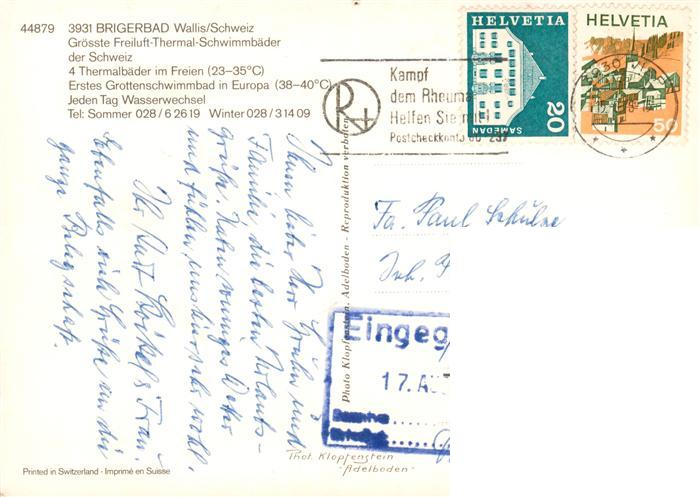 44879 3931 BRIGERBAD Wallis/Schweiz
Grösste Freiluft-Thermal-Schwimmbäder
der Schweiz
4 Thermalbäder im Freien (23–35°C)
Erstes Grottenschwimmbad in Europa (38–40°C)
Jeden Tag Wasserwechsel
Tel: Sommer 028/6 26 19 Winter 028/3 14 09
Kampf
dem Rheuma
Helfen Sie mit!
Postcheckkonto
HELVETIA
20
SAMEDAN
HELVETIA
50
3930
Ihnen lieber Herr und
Familie die besten Urlaubs-
Grüße. Haben sonniges Wetter
und fühlen uns hier sehr wohl.
Ihr Kurt Frau.
Ebenfalls viele Grüße an die
ganze Belegschaft.
Fa. Paul Schulze
Inh.
Eingeg
17. AU
Photo Klopfenstein, Adelboden - Reproduktion verboten
Phot. Klopfenstein
"Adelboden"
Printed in Switzerland - Imprimé en Suisse